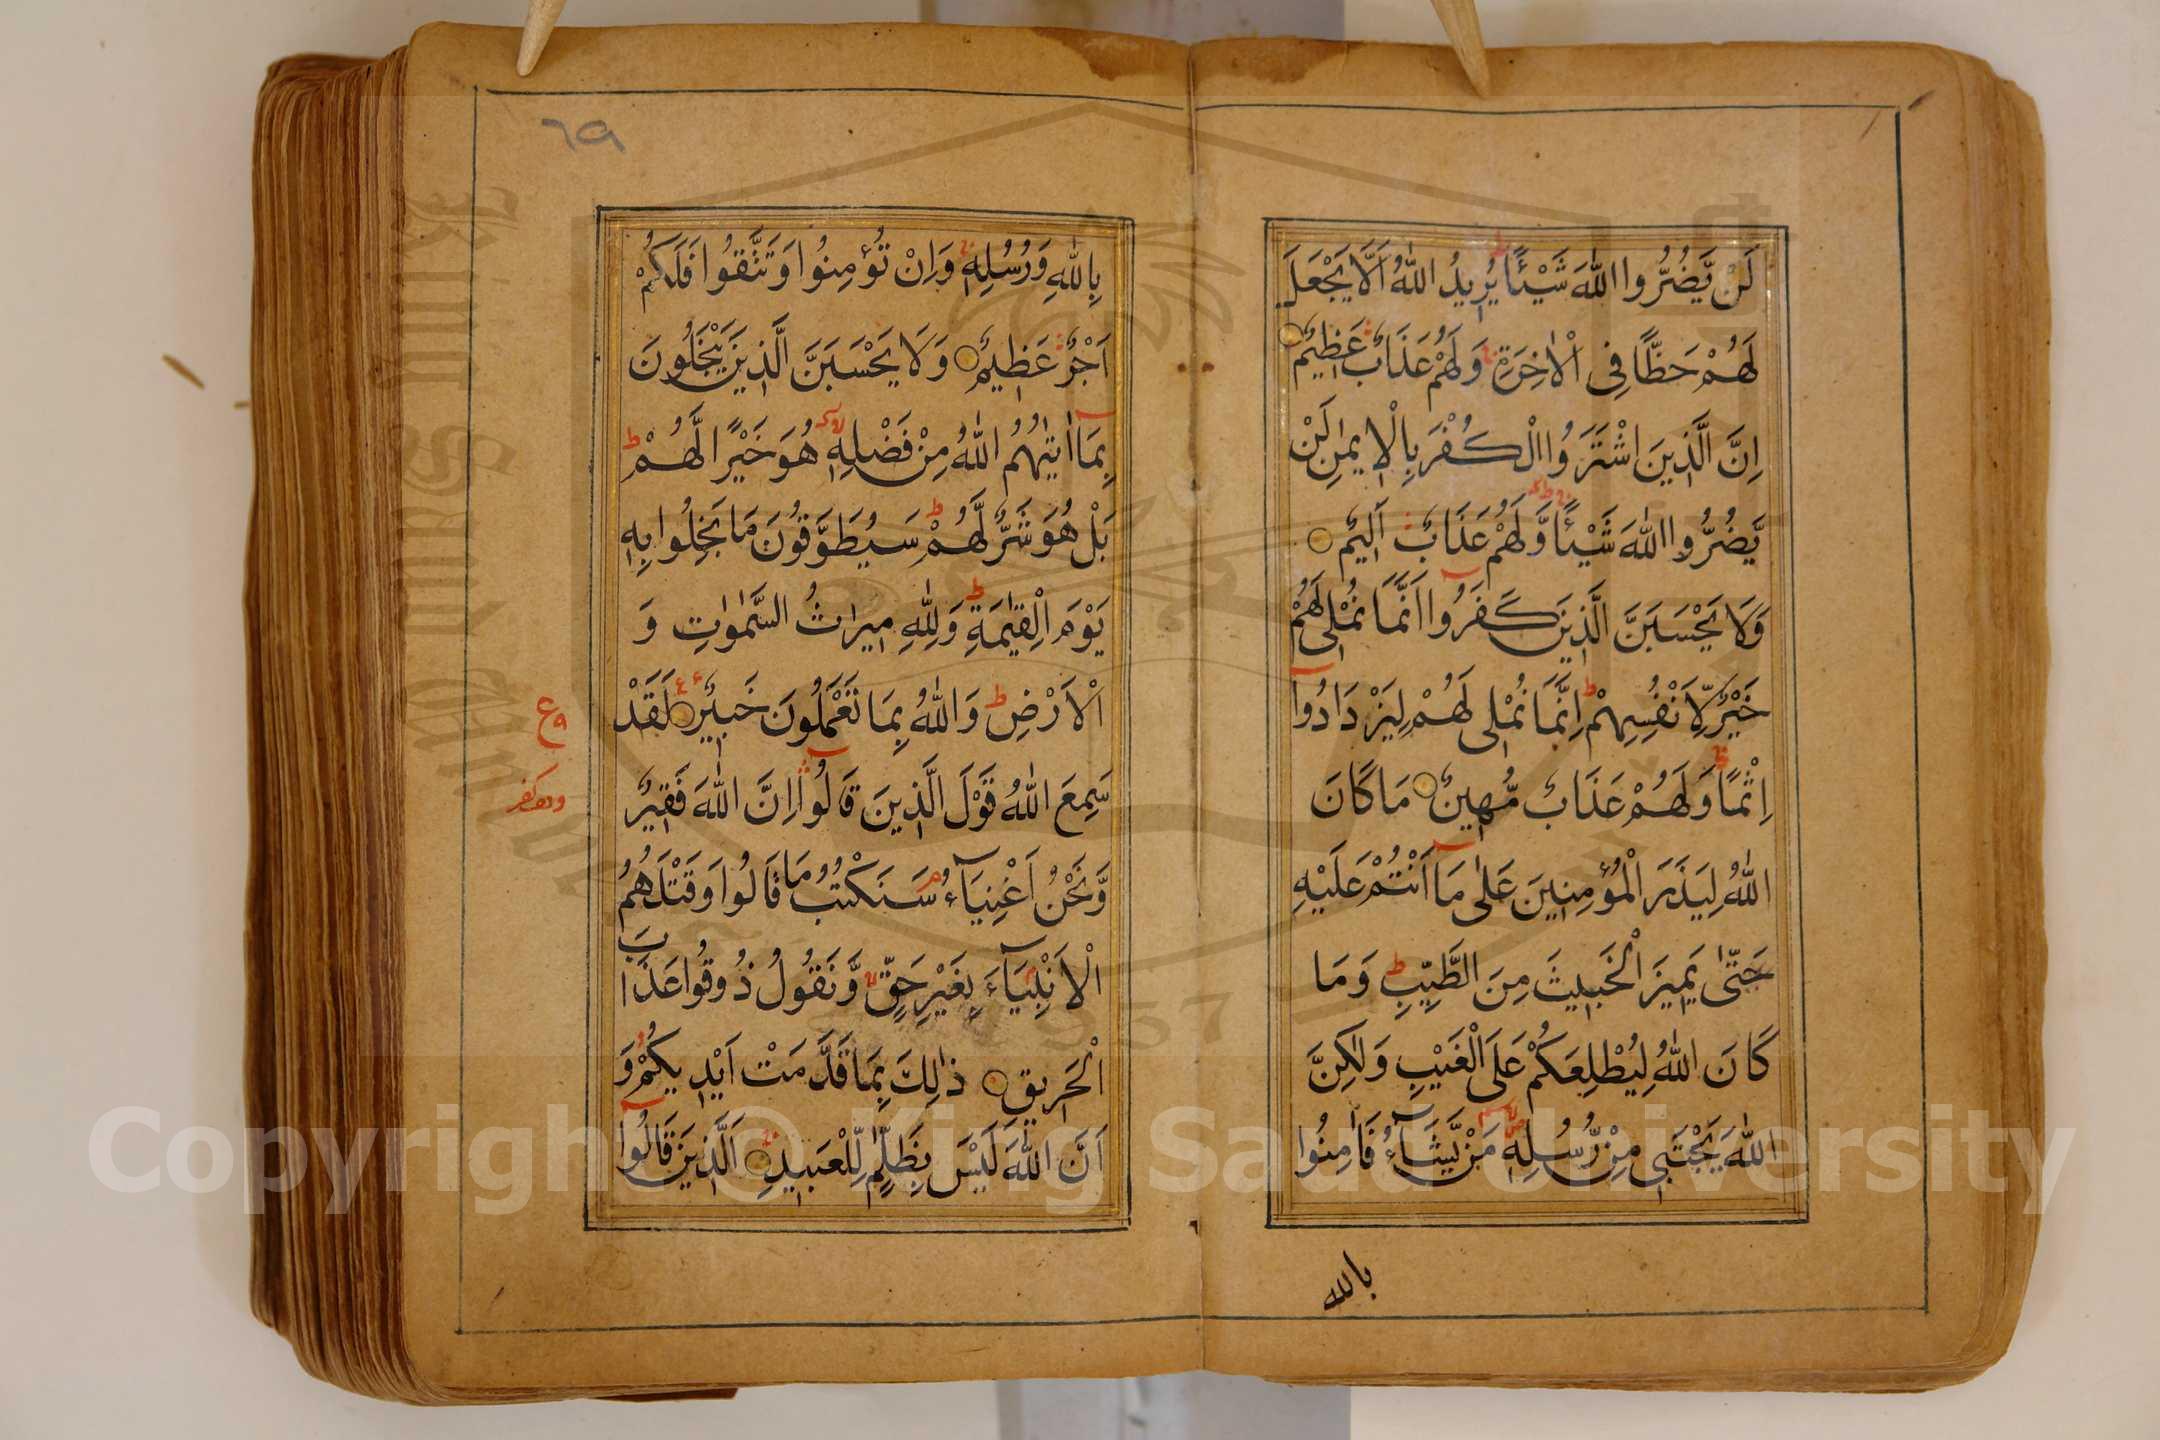 لَنْ يَّضُرُّوا اللّٰهَ شَيْـًٔا يُرِيدُ اللّٰهُ اَلَّا يَجْعَلَ
لَهُمْ حَظًّا فِى الْاٰخِرَةِ وَلَهُمْ عَذَابٌ عَظِيمٌ
اِنَّ الَّذِينَ اشْتَرَوُا الْكُفْرَ بِالْاِيمٰنِ لَنْ
يَّضُرُّوا اللّٰهَ شَيْـًٔا وَّلَهُمْ عَذَابٌ اَلِيمٌ
وَلَا يَحْسَبَنَّ الَّذِينَ كَفَرُوا اَنَّمَا نُمْلِى لَهُمْ
خَيْرٌ لِّاَنْفُسِهِمْ اِنَّمَا نُمْلِى لَهُمْ لِيَزْدَادُوا
اِثْمًا وَلَهُمْ عَذَابٌ مُّهِينٌ مَا كَانَ
اللّٰهُ لِيَذَرَ الْمُؤْمِنِينَ عَلٰى مَا اَنْتُمْ عَلَيْهِ
حَتّٰى يَمِيزَ الْخَبِيثَ مِنَ الطَّيِّبِ وَمَا
كَانَ اللّٰهُ لِيُطْلِعَكُمْ عَلَى الْغَيْبِ وَلٰكِنَّ
اللّٰهَ يَجْتَبِى مِنْ رُّسُلِهِ مَنْ يَّشَآءُ فَاٰمِنُوا
بالله
٦٩
بِاللّٰهِ وَرُسُلِهِ وَاِنْ تُؤْمِنُوا وَتَتَّقُوا فَلَكُمْ
اَجْرٌ عَظِيمٌ وَلَا يَحْسَبَنَّ الَّذِينَ يَبْخَلُونَ
بِمَا اٰتٰىهُمُ اللّٰهُ مِنْ فَضْلِهِ هُوَ خَيْرًا لَّهُمْ
بَلْ هُوَ شَرٌّ لَّهُمْ سَيُطَوَّقُونَ مَا بَخِلُوا بِهِ
يَوْمَ الْقِيٰمَةِ وَلِلّٰهِ مِيرٰاثُ السَّمٰوٰتِ وَ
الْاَرْضِ وَاللّٰهُ بِمَا تَعْمَلُونَ خَبِيرٌ لَقَدْ
سَمِعَ اللّٰهُ قَوْلَ الَّذِينَ قَالُوا اِنَّ اللّٰهَ فَقِيرٌ
وَّنَحْنُ اَغْنِيَآءُ سَنَكْتُبُ مَا قَالُوا وَقَتْلَهُمُ
الْاَنْبِيَآءَ بِغَيْرِ حَقٍّ وَّنَقُولُ ذُوقُوا عَذَابَ
الْحَرِيقِ ذٰلِكَ بِمَا قَدَّمَتْ اَيْدِيكُمْ وَ
اَنَّ اللّٰهَ لَيْسَ بِظَلَّامٍ لِّلْعَبِيدِ اَلَّذِينَ قَالُوا
Copyright © King Saud University